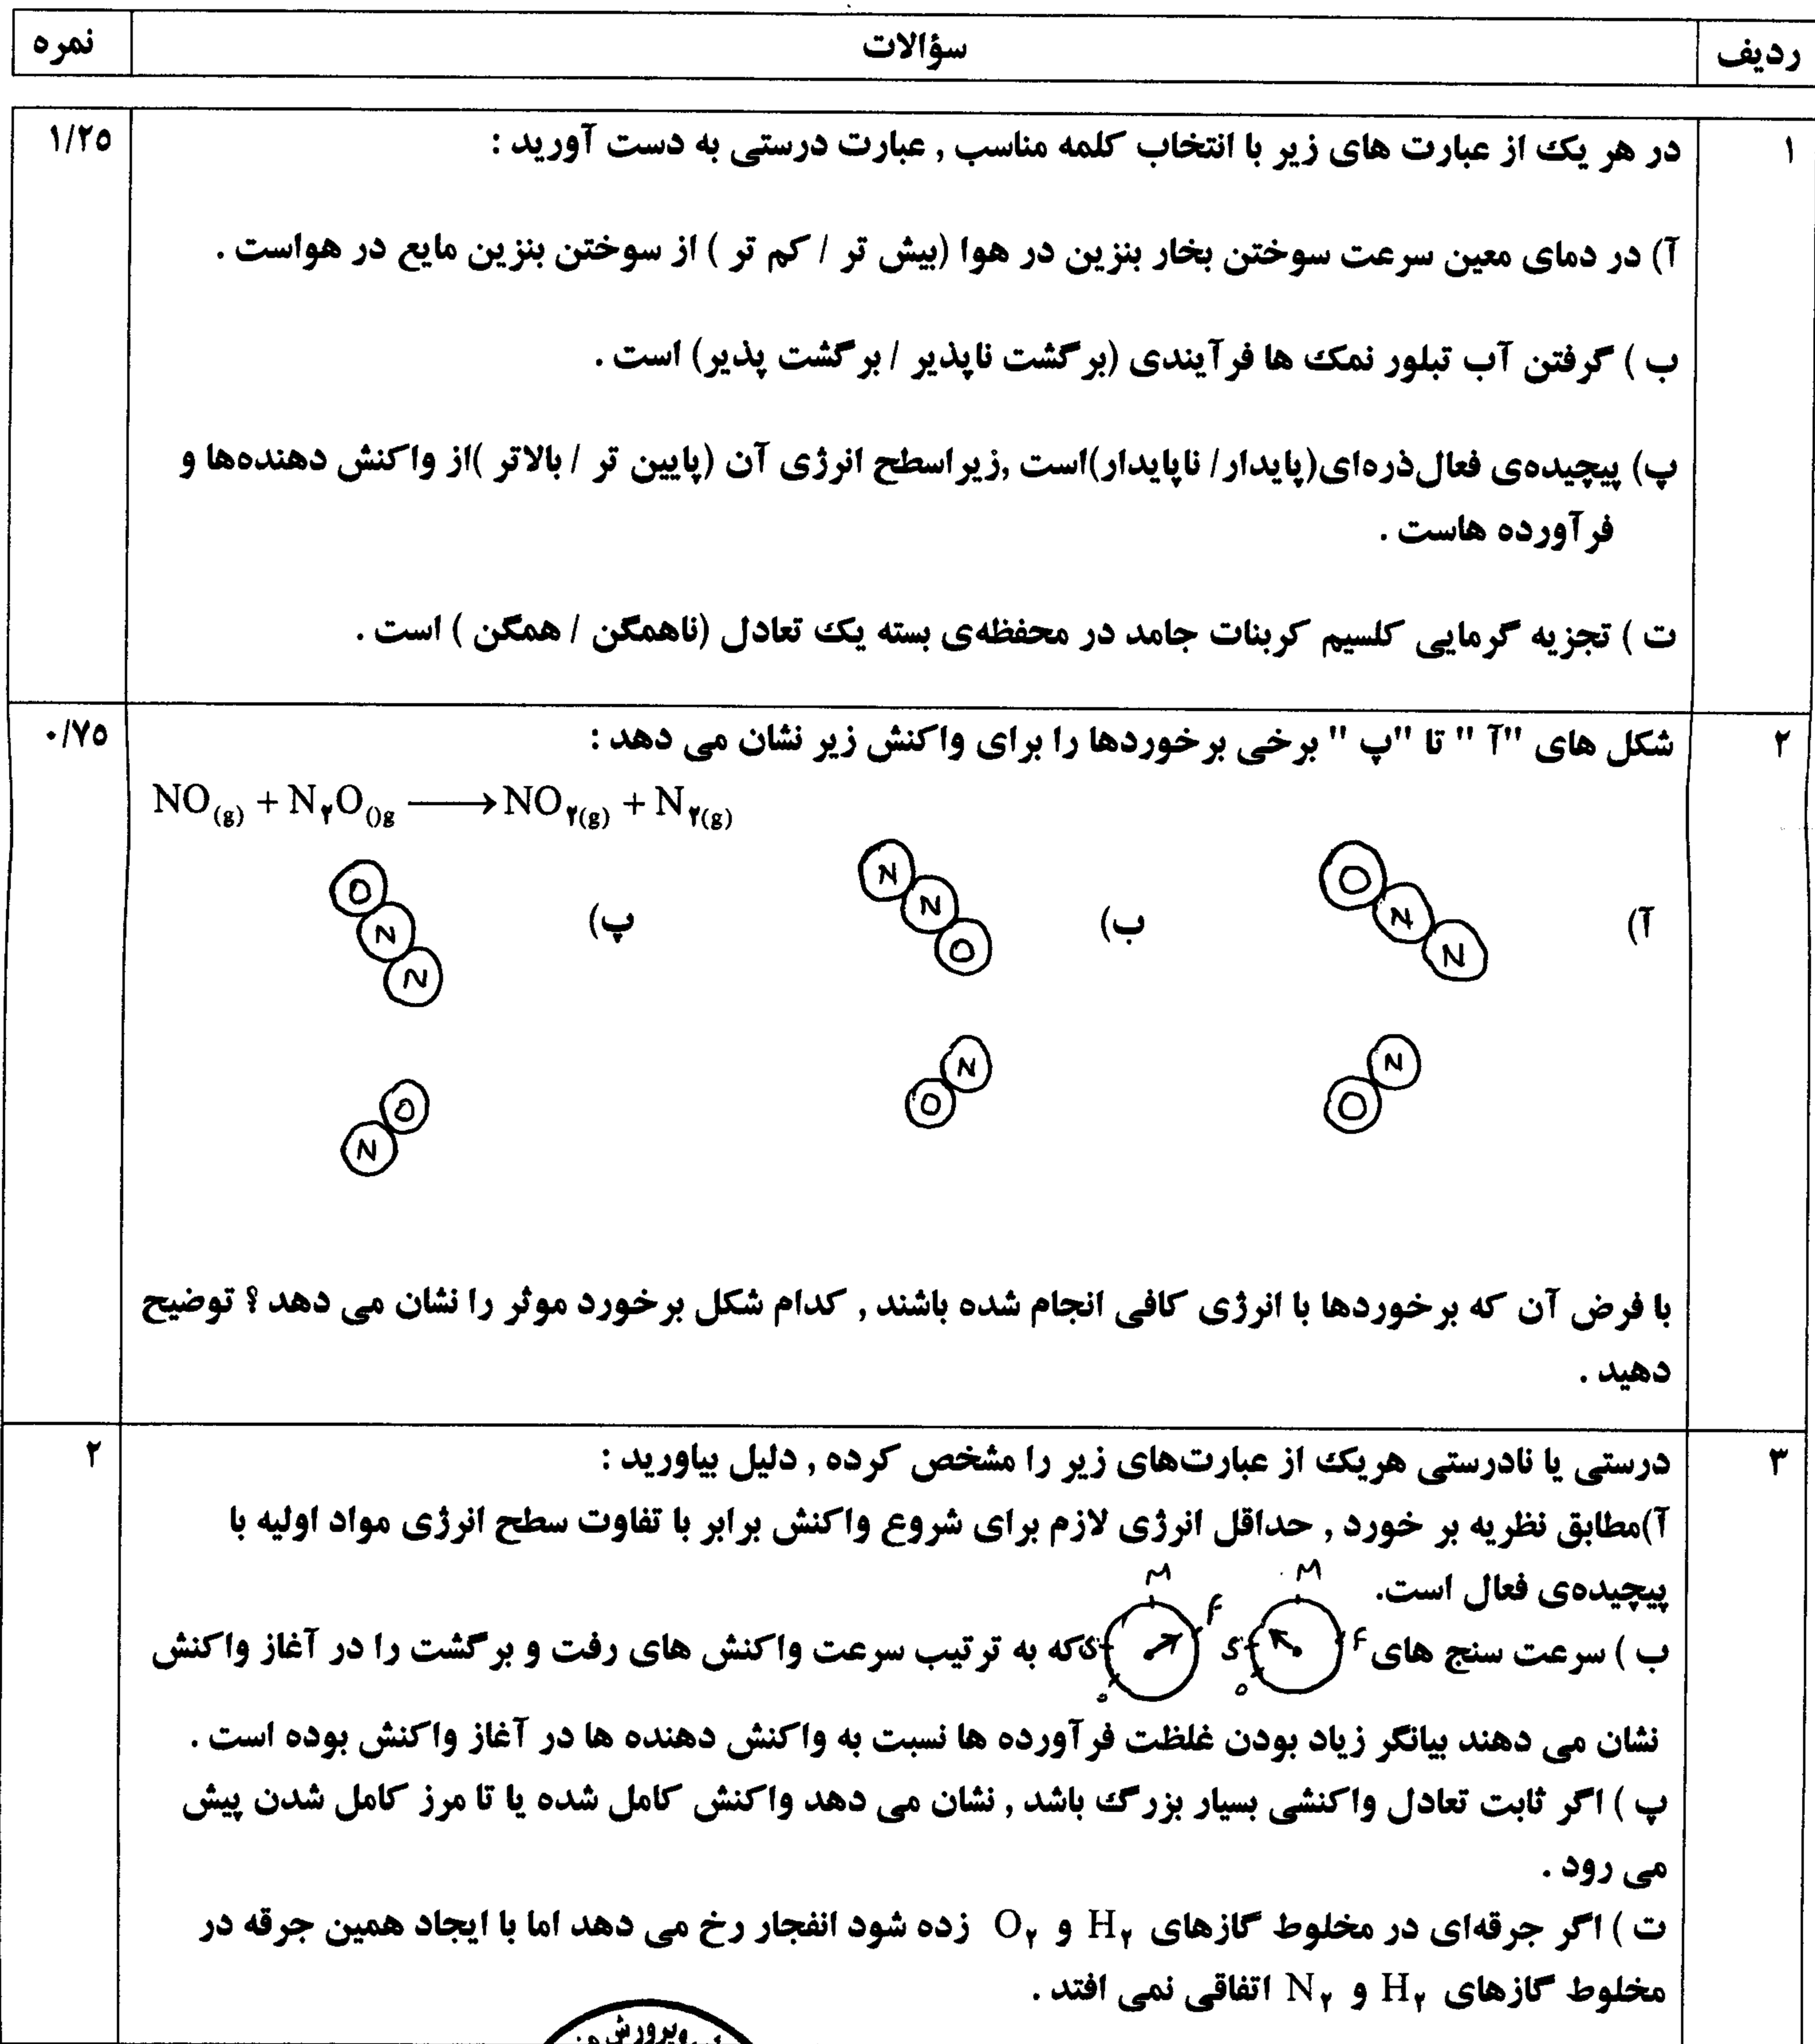 ردیف سؤالات نمره
۱ در هر یک از عبارت های زیر با انتخاب کلمه مناسب , عبارت درستی به دست آورید : ۱/۲۵
آ) در دمای معین سرعت سوختن بخار بنزین در هوا (بیش تر / کم تر ) از سوختن بنزین مایع در هواست .
ب ) گرفتن آب تبلور نمک ها فرآیندی (برگشت ناپذیر / برگشت پذیر) است .
پ) پیچیده‌ی فعال‌ذره‌ای(پایدار/ ناپایدار)است ,زیراسطح انرژی آن (پایین تر / بالاتر )از واکنش دهنده‌ها و
فرآورده هاست .
ت ) تجزیه گرمایی کلسیم کربنات جامد در محفظه‌ی بسته یک تعادل (ناهمگن / همگن ) است .
۲ شکل های "آ " تا "پ " برخی برخوردها را برای واکنش زیر نشان می دهد : ۰/۷۵
NO(g) + N۲O()g ⟶ NO۲(g) + N۲(g)
آ) ب) پ)
O N N
N N O
O N N
N O
N O
O N
با فرض آن که برخوردها با انرژی کافی انجام شده باشند , کدام شکل برخورد موثر را نشان می دهد ؟ توضیح
دهید .
۳ درستی یا نادرستی هریک از عبارت‌های زیر را مشخص کرده , دلیل بیاورید : ۲
آ)مطابق نظریه بر خورد , حداقل انرژی لازم برای شروع واکنش برابر با تفاوت سطح انرژی مواد اولیه با
پیچیده‌ی فعال است.
ب ) سرعت سنج های که به ترتیب سرعت واکنش های رفت و برگشت را در آغاز واکنش
نشان می دهند بیانگر زیاد بودن غلظت فرآورده ها نسبت به واکنش دهنده ها در آغاز واکنش بوده است .
پ ) اگر ثابت تعادل واکنشی بسیار بزرگ باشد , نشان می دهد واکنش کامل شده یا تا مرز کامل شدن پیش
می رود .
ت ) اگر جرقه‌ای در مخلوط گازهای H۲ و O۲ زده شود انفجار رخ می دهد اما با ایجاد همین جرقه در
مخلوط گازهای H۲ و N۲ اتفاقی نمی افتد .